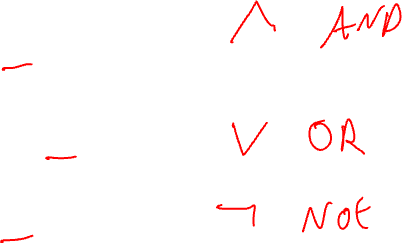 ∧ AND
–
∨ OR
–
¬ NOT
–